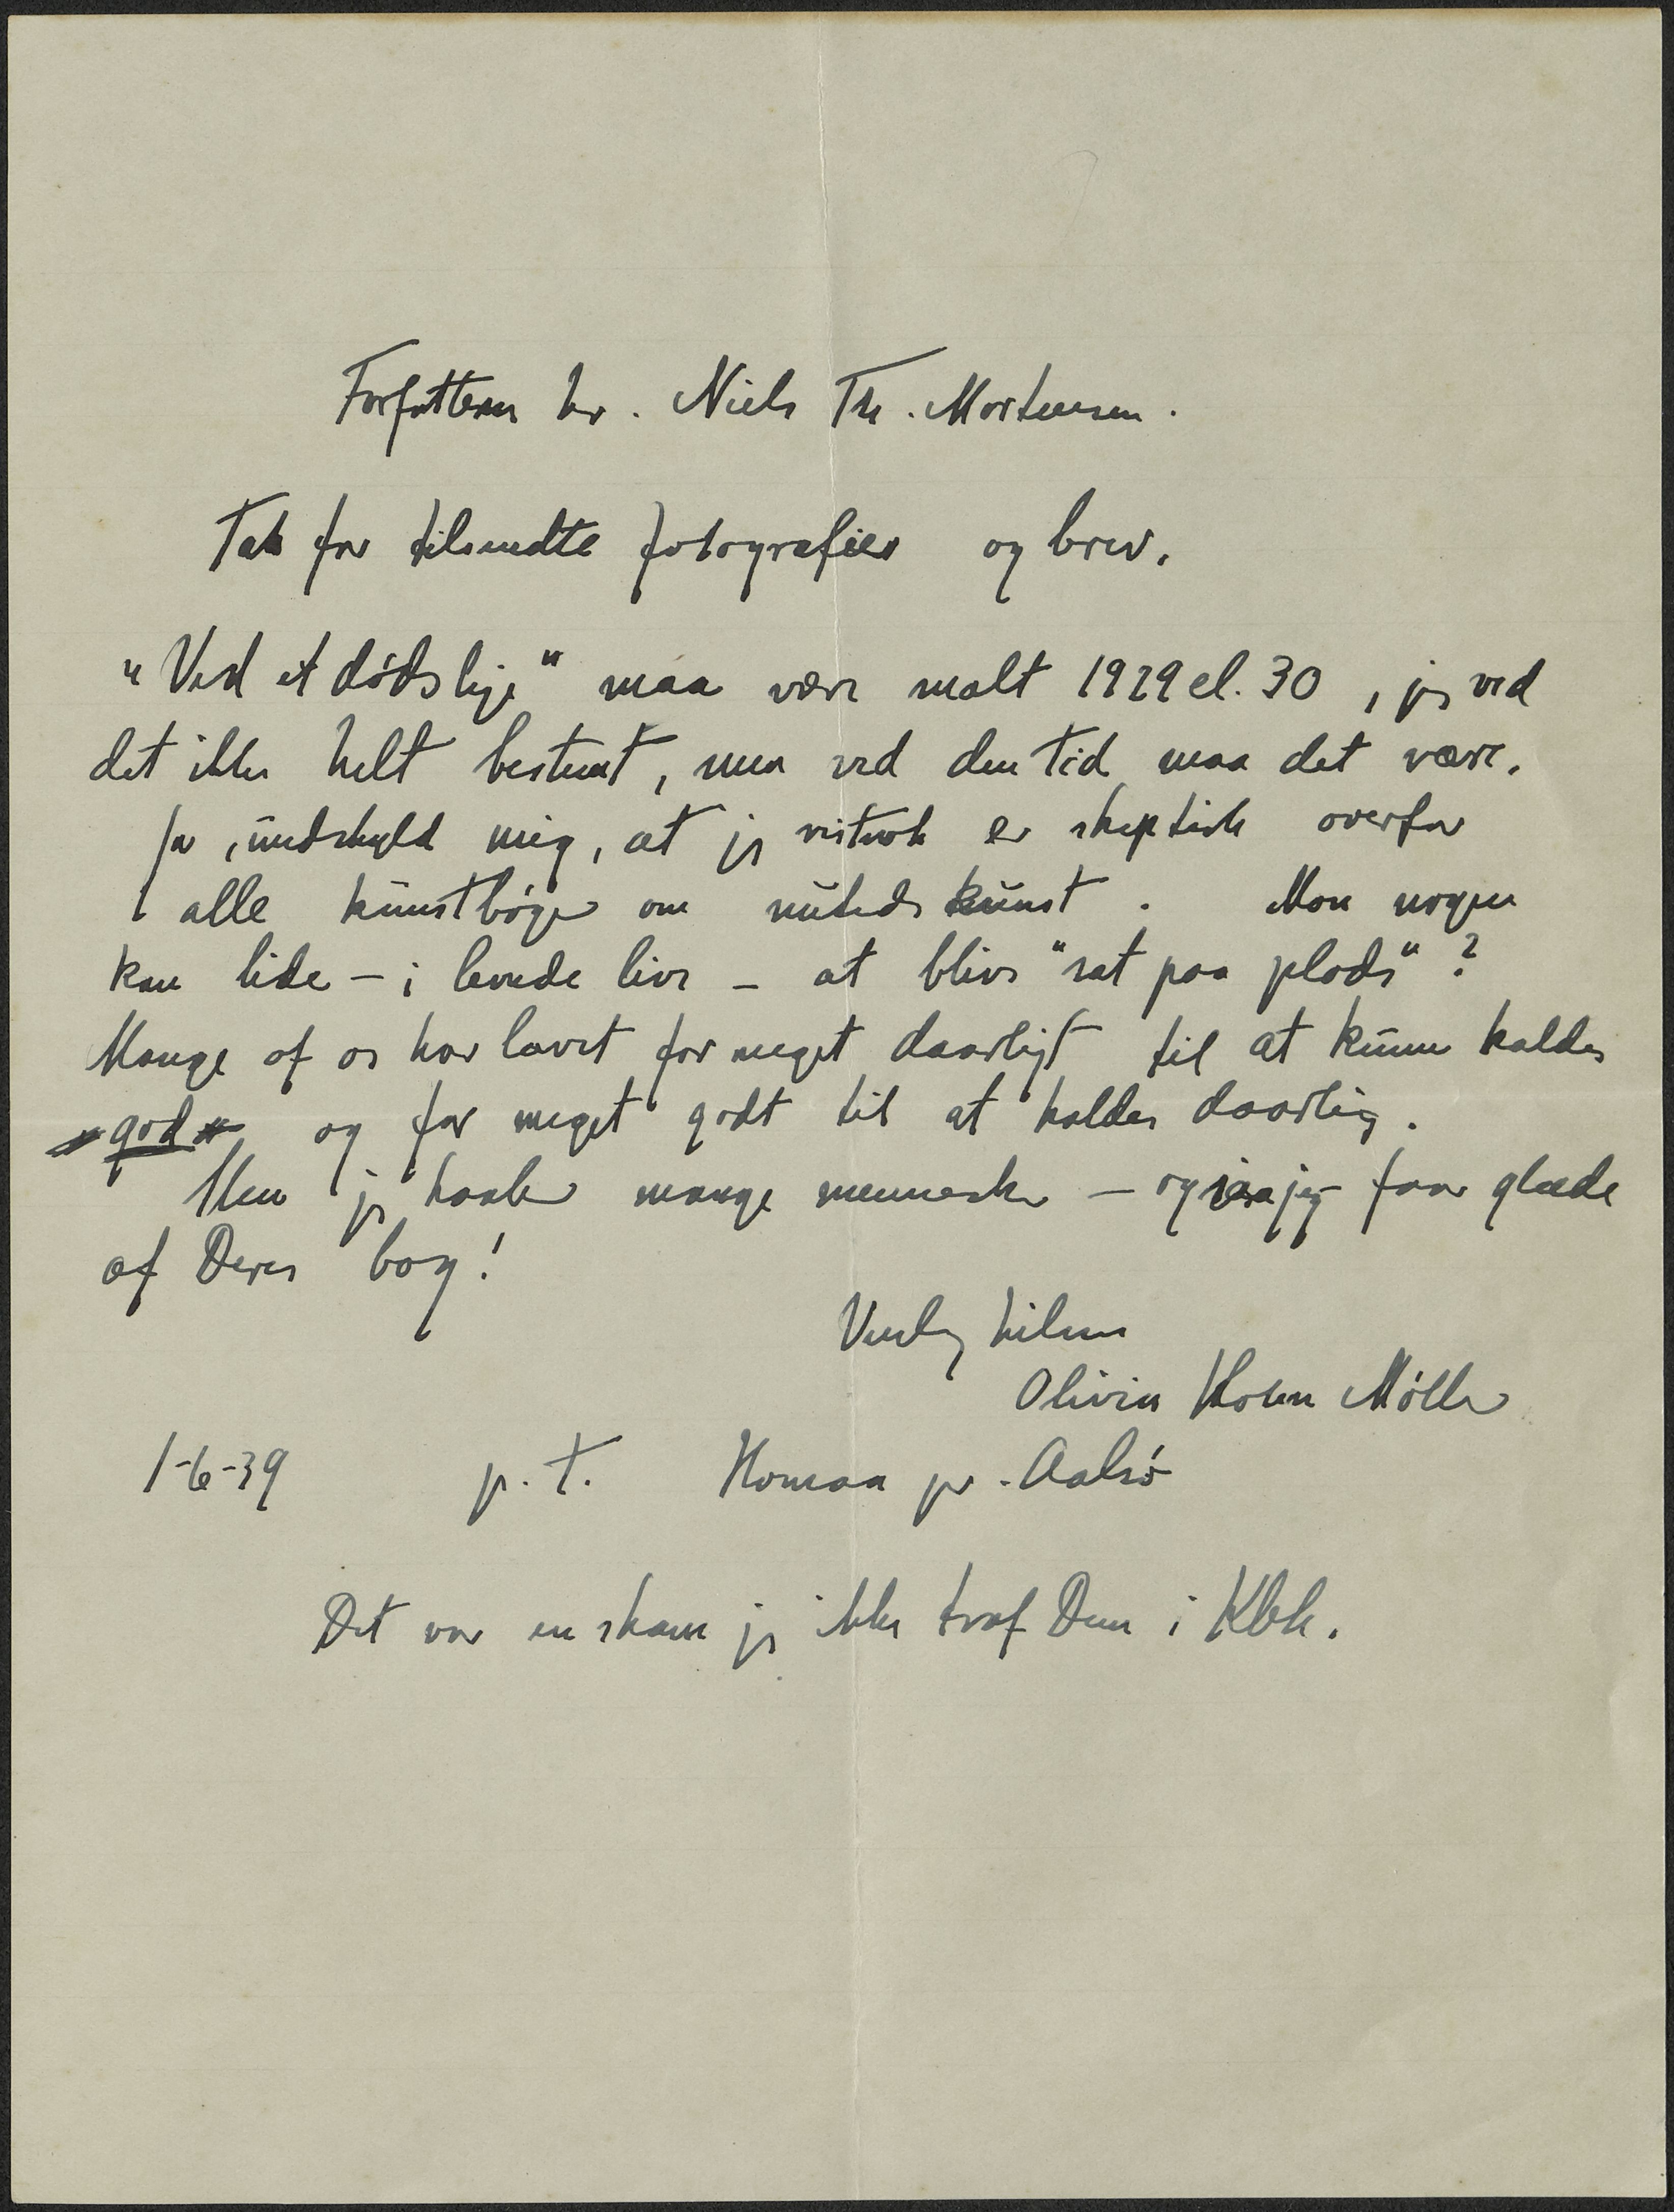 Forfatteren hr. Niels Th. Mortensen.
Tak for tilsendte fotografier og brev.
"Ved et dødsleje" maa være malt 1929 el. 30, jeg ved
det ikke helt bestemt, men ved den tid maa det være.
Ja, undskyld mig, at jeg vistnok er skeptisk overfor
alle kunstbøger om nutidskunst. Mon nogen
kan lide – i levende live – at blive "sat paa plads"?
Mange af os har lavet for meget daarligt til at kunne kaldes
god og for meget godt til at kaldes daarlig.
Men jeg haaber mange mennesker – og jeg – faar glæde
af Deres bog!
Venlig hilsen
Olivia Holm Møller
1-6-39 p.t. Homaa pr. Aalsø
Det var en skam jeg ikke traf Dem i Kbh.